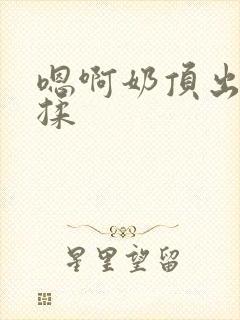 嗯啊奶頂出
揉
星里望留